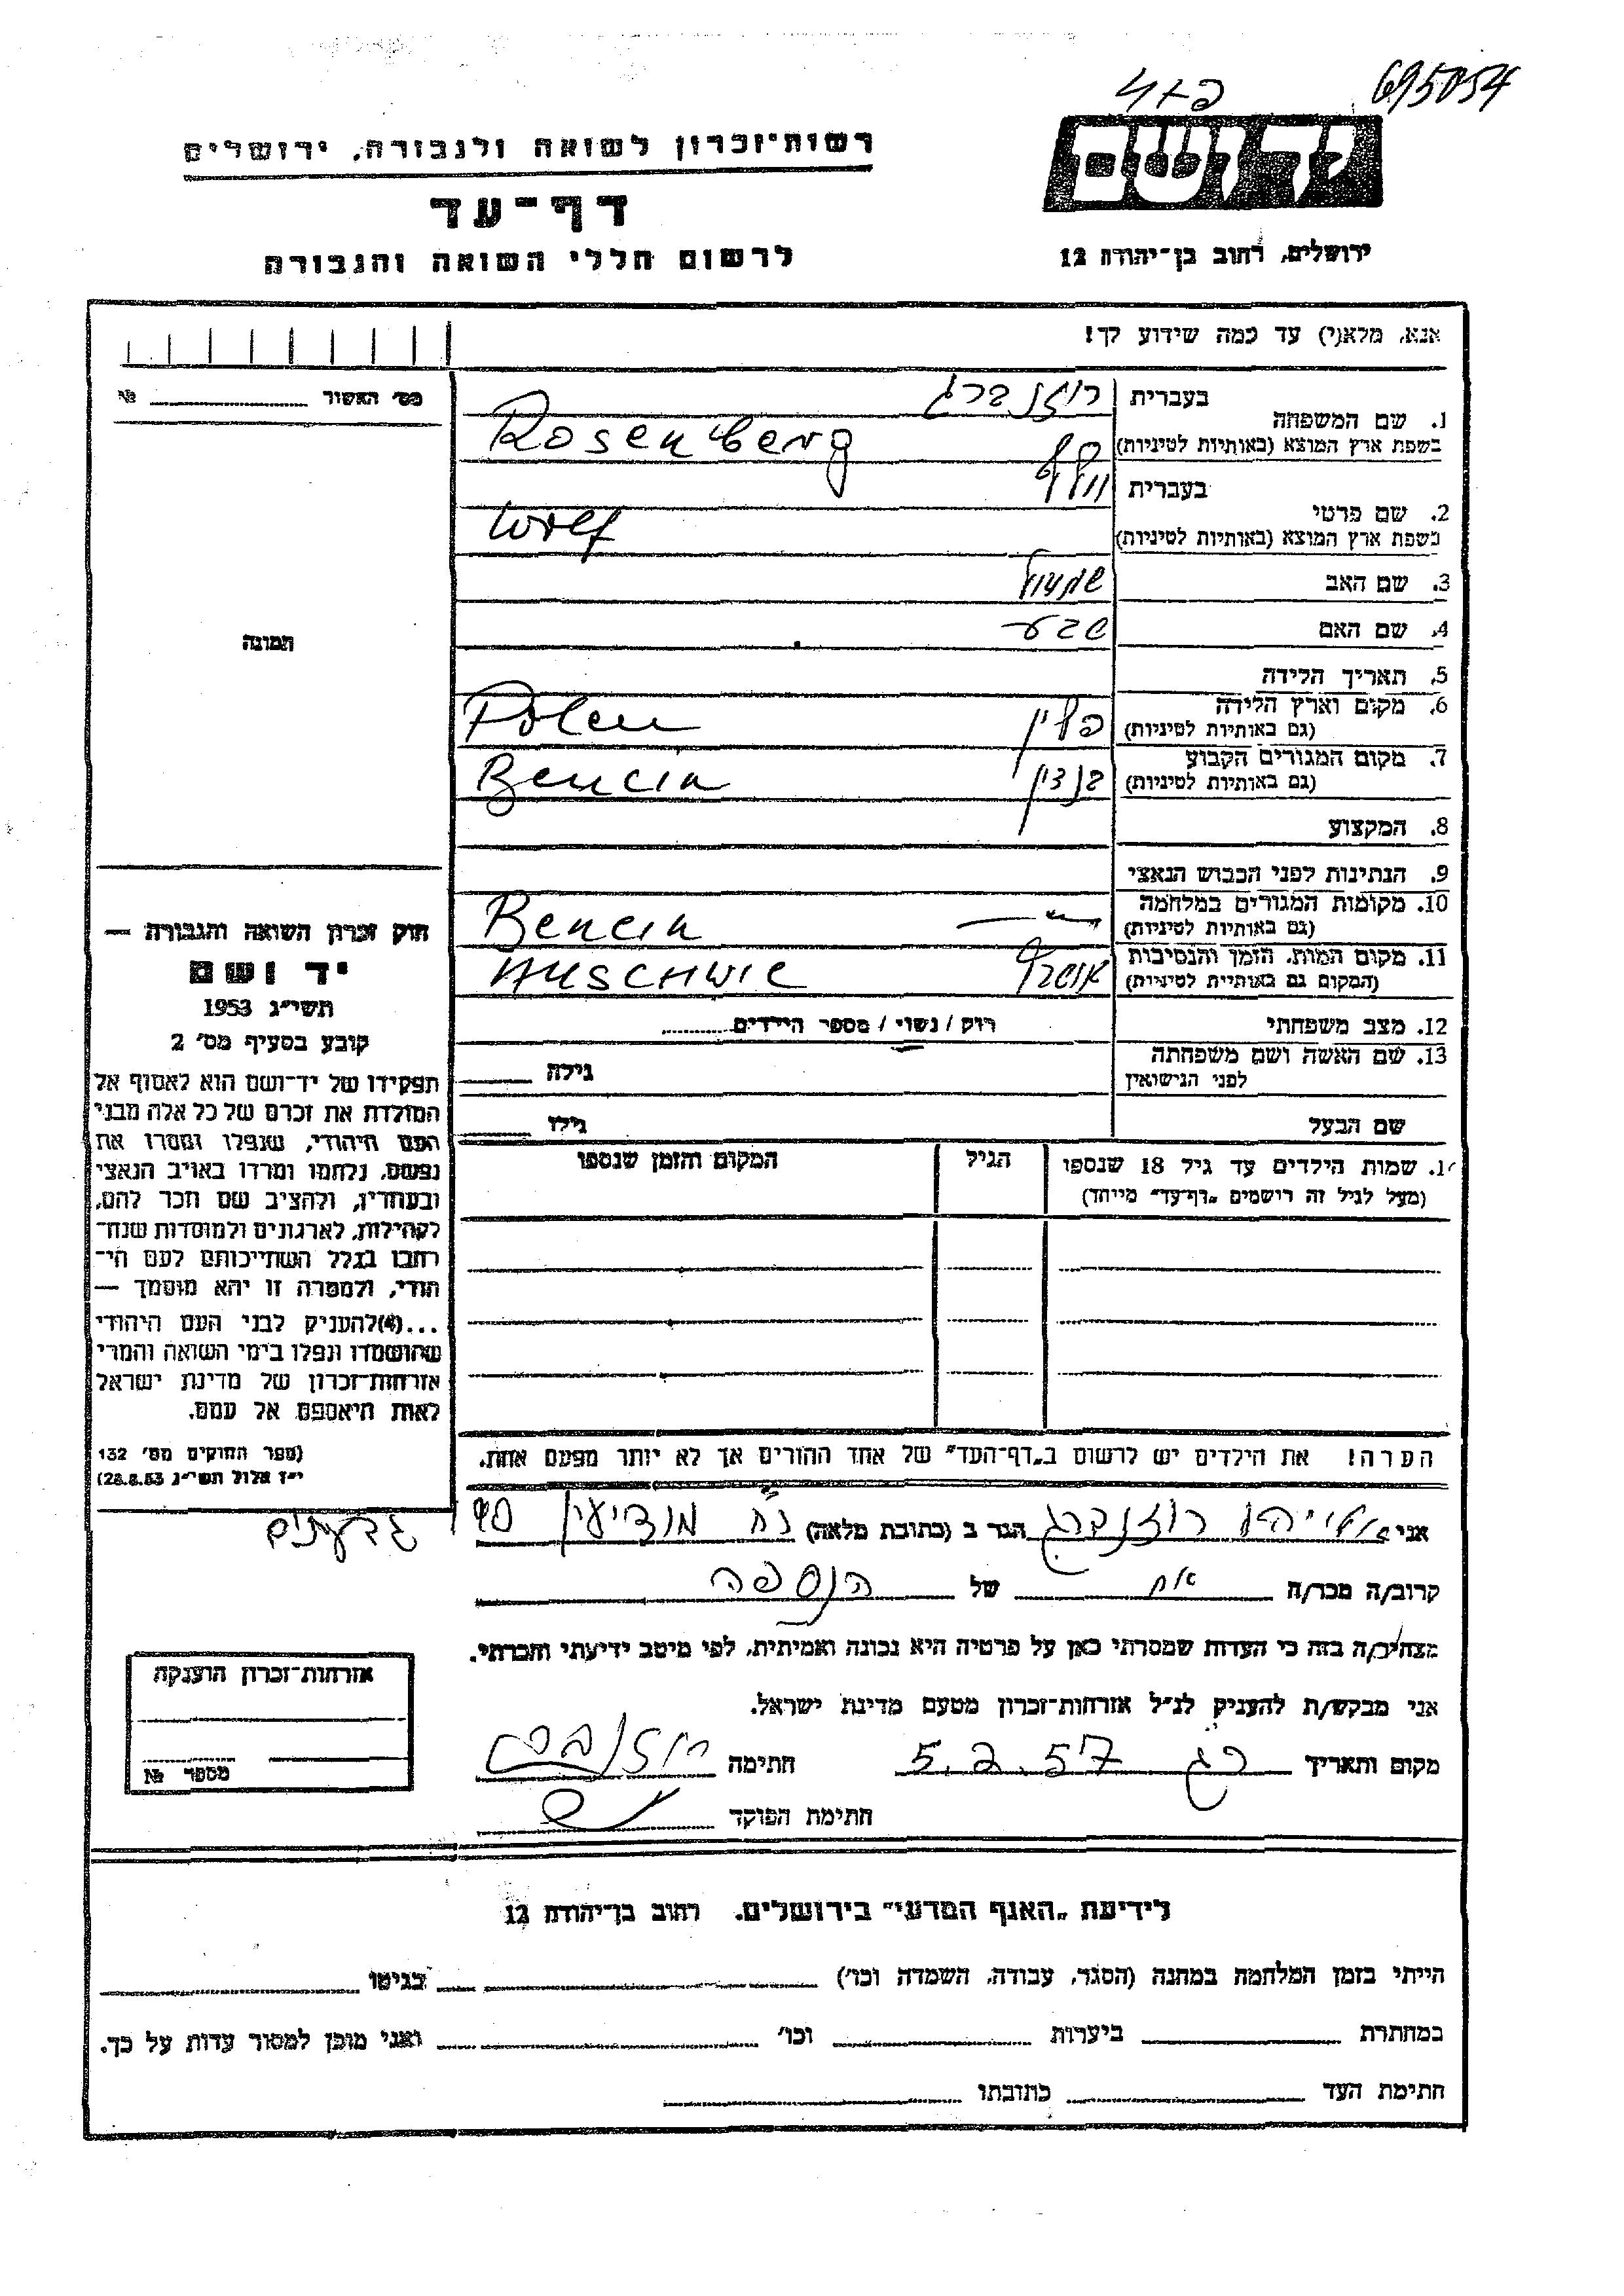 695054
רשות־זכרון לשואה ולגבורה, ירושלים
דף־עד
לרשום חללי השואה והגבורה
יד ושם
ירושלים, רחוב בן־יהודה 12
אנא, מלא(י) עד כמה שידוע לך!
מס׳ האשור № 
1. שם המשפחה
בעברית רוזנברג
בשפת ארץ המוצא (באותיות לטיניות) Rosenberg
2. שם פרטי
בעברית וולף
בשפת ארץ המוצא (באותיות לטיניות) Wolf
3. שם האב שמעון
4. שם האם שבע
5. תאריך הלידה
6. מקום וארץ הלידה
(גם באותיות לטיניות) פולין Polen
7. מקום המגורים הקבוע
(גם באותיות לטיניות) בנדין Bencin
8. המקצוע
9. הנתינות לפני הכבוש הנאצי
10. מקומות המגורים במלחמה
(גם באותיות לטיניות) Bencin
11. מקום המות, הזמן והנסיבות
(המקום גם באותיות לטיניות) Auschwic
12. מצב משפחתי רווק / נשוי / מספר הילדים
13. שם האשה ושם משפחתה
לפני הנישואין גילה
שם הבעל גילו
שמות הילדים עד גיל 18 שנספו
(מעל לגיל זה רושמים „דף־עד״ מיוחד)
הגיל
המקום והזמן שנספו
הערה! את הילדים יש לרשום ב„דף־העד״ של אחד ההורים אך לא יותר מפעם אחת.
תמונה
חוק זכרון השואה והגבורה —
יד ושם
תשי״ג 1953
קובע בסעיף מס׳ 2
תפקידו של יד־ושם הוא לאסוף אל
המולדת את זכרם של כל אלה מבני
העם היהודי, שנפלו ומסרו את
נפשם, נלחמו ומרדו באויב הנאצי
ובעוזריו, ולהציב שם וזכר להם,
לקהילות, לארגונים ולמוסדות שנח־
רבו בגלל השתייכותם לעם הי־
הודי, ולמטרה זו יהא מוסמך —
...(4) להעניק לבני העם היהודי
שהושמדו ונפלו בימי השואה והמרי
אזרחות־זכרון של מדינת ישראל
לאות היאספם אל עמם.
(ספר החוקים מס׳ 132
י״ז אלול תשי״ג 28.8.53)
אני רוזנברג הגר ב (כתובת מלאה) מודיעין 90 גבעתיים
קרוב/ה מכר/ה אח של הנספה
מצהיר/ה בזה כי העדות שמסרתי כאן על פרטיה היא נכונה ואמיתית, לפי מיטב ידיעתי והכרתי.
אני מבקש/ת להעניק לנ״ל אזרחות־זכרון מטעם מדינת ישראל.
מקום ותאריך רג 5.2.57 חתימה רוזנברג
חתימת הפוקד
אזרחות־זכרון הוענקה
מספר №
לידיעת „האגף המדעי״ בירושלים, רחוב בן־יהודה 12
הייתי בזמן המלחמה במחנה (הסגר, עבודה, השמדה וכו׳) בגיטו
במחתרת ביערות וכו׳ ואני מוכן למסור עדות על כך.
חתימת העד כתובתו